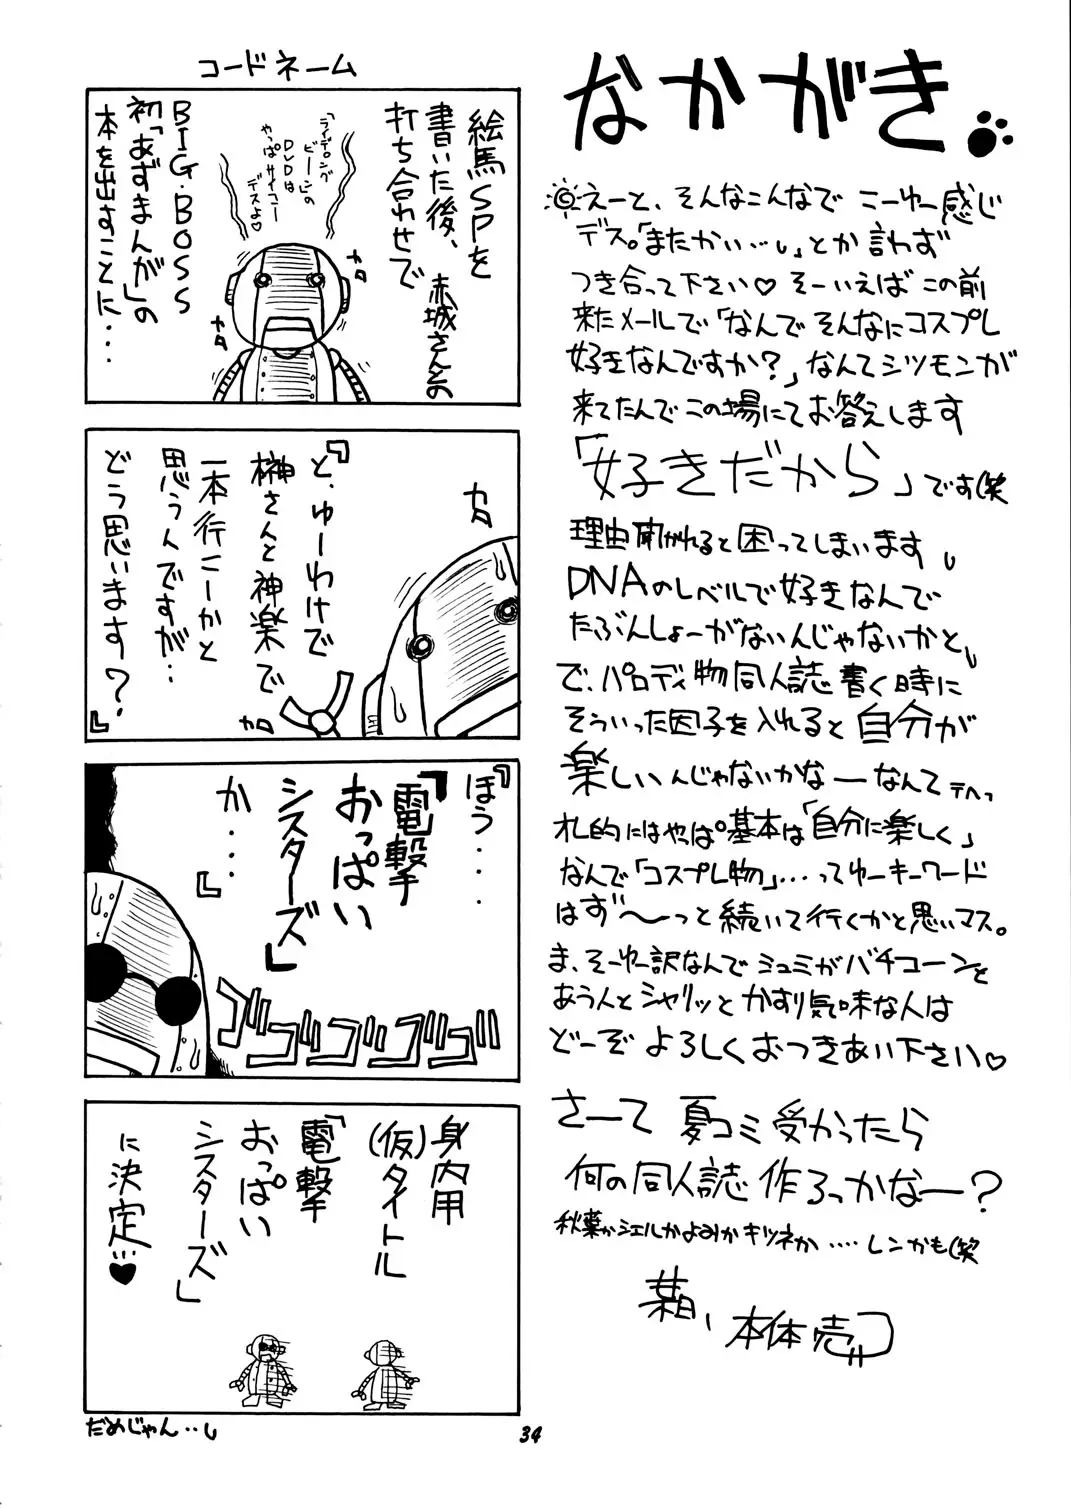 なかがき
えーと、そんなこんなで こーゆー感じ
デス。「またかい…」とか言わず
つき合って下さい♡ そーいえば この前
来たメールで「なんで そんなにコスプレ
好きなんですか?」なんてシツモンが
来てたんで この場にてお答えします
「好きだから」です(笑
理由聞かれると困ってしまいます
DNAのレベルで好きなんで
たぶんしょーがないんじゃないかと
で、パロディ物同人誌書く時に
そういった因子を入れると自分が
楽しいんじゃないかなーなんて
的にはやっぱ基本は「自分に楽しく」
なんで「コスプレ物」…ってゆーキーワード
はず〜っと続いて行くかと思いマス。
ま、そーゆー訳なんで ミュミがバチコーンと
あう人とシャリッとかすり気味な人は
どーぞ よろしくおつきあい下さい♡
さーて 夏コミ受かったら
何の同人誌 作ろっかなー?
秋葉かシエルかよみかキツネか‥‥レンかも(笑
本体売
コードネーム
絵馬SPを
書いた後、赤城さんとの
打ち合わせで
「ライデロング
ビーンの
DVDは
やっぱサイコー
デスよ♡
BIG・BOSS
初「あずまんが」の
本を出すことに・・・
カタ
カタ
『と、ゆーわけで
榊さんと神楽で
一本行こーかと
思うんですが‥
どう思います?』
カタ
カタ
『ほう・・・
「電撃
おっぱい
シスターズ」
か・・・』
ゴゴゴゴゴ
身内用
(仮)タイトル
「電撃
おっぱい
シスターズ」
に決定…♥
だめじゃん‥
34